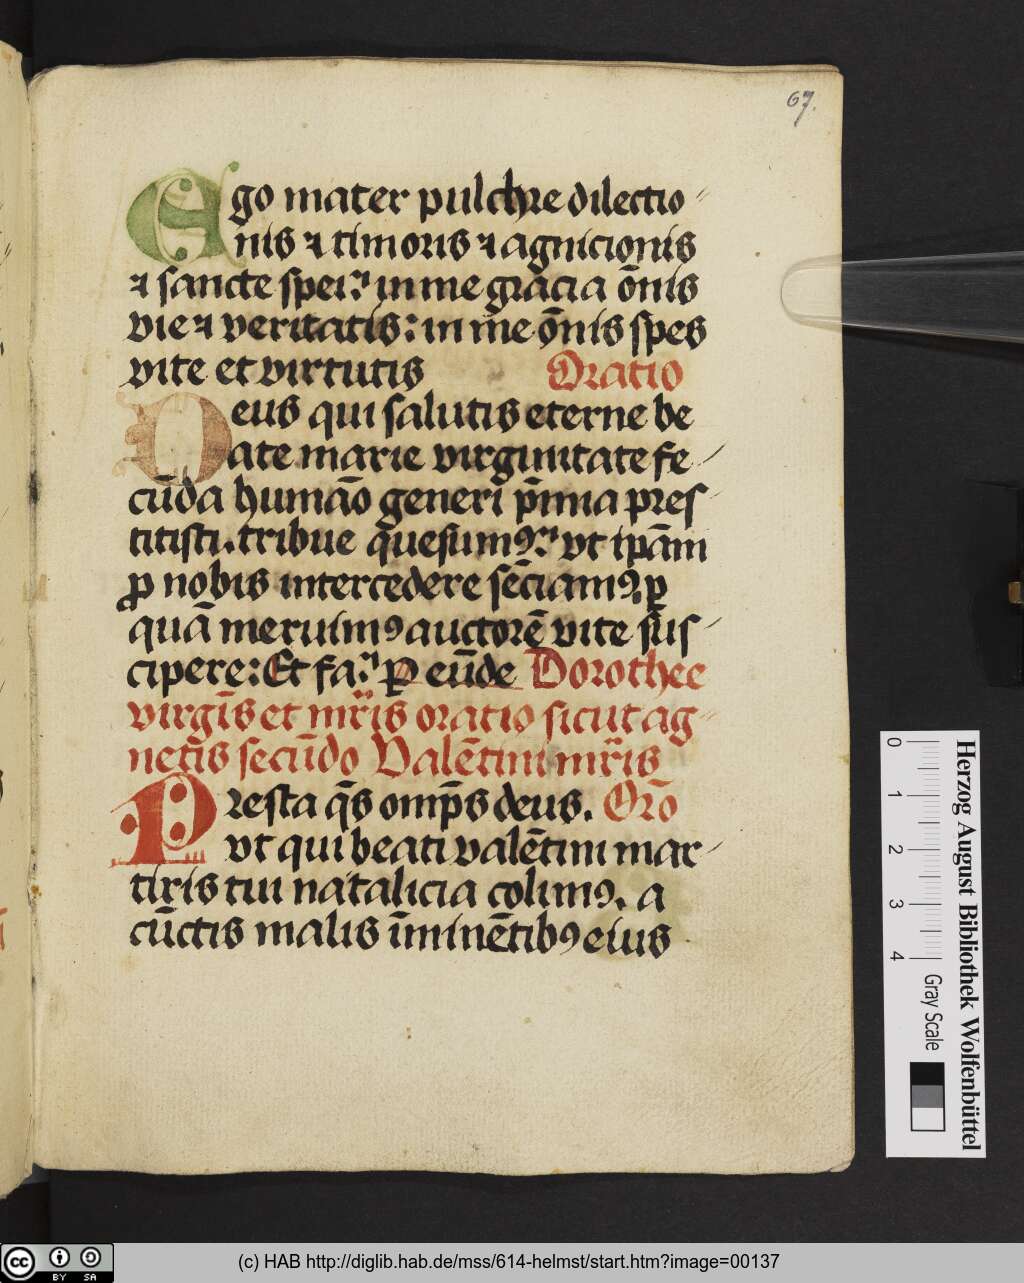 67.
Ego mater pulchre dilectio〃
nis ⁊ timoris ⁊ agnicionis
⁊ sancte spei: in me gracia o̅nis
vie ⁊ veritatis: in me o̅nis spes
vite et virtutis Oratio
Deus qui salutis eterne be
ate marie virginitate fe⸗
cu̅da huma̅o generi p̅mia pres
titisti. tribue quesumꝰ: ut ipa̅m
ꝓ nobis intercedere se̅ciamꝰ, ꝑ
qua̅ meruimꝰ auctore̅ vite sus⸗
cipere: Et fa: P eu̅de Dorothee
virgi̅s et mr̅is oratio sicut ag〃
netis secu̅do Vale̅tini mr̅is
Presta q̅s omp̅s deus. Oro̅
ut qui beati vale̅tini mar⸗
tiris tui natalicia colimꝰ, a
cu̅ctis malis i̅mine̅tibꝰ eius
Herzog August Bibliothek Wolfenbüttel
0 1 2 3 4 Gray Scale
cc BY SA
(c) HAB http://diglib.hab.de/mss/614-helmst/start.htm?image=00137